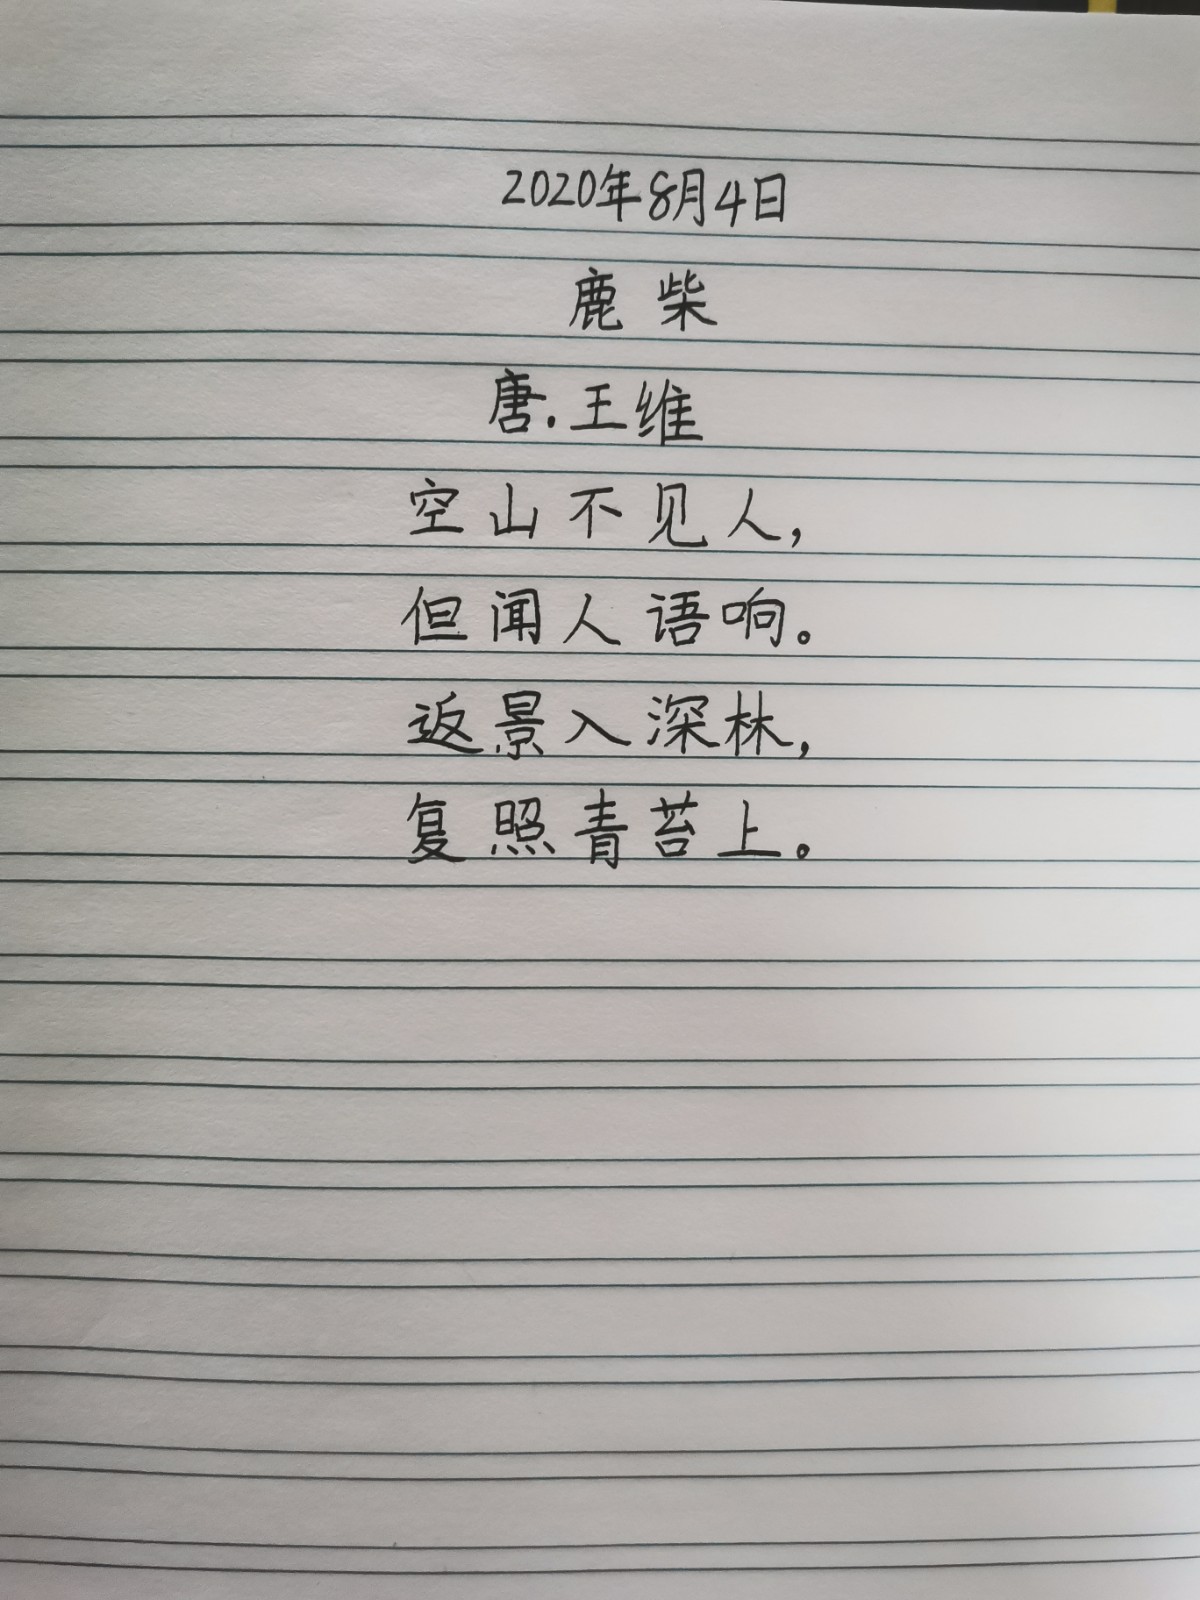 2020年8月4日
鹿柴
唐.王维
空山不见人,
但闻人语响。
返景入深林,
复照青苔上。